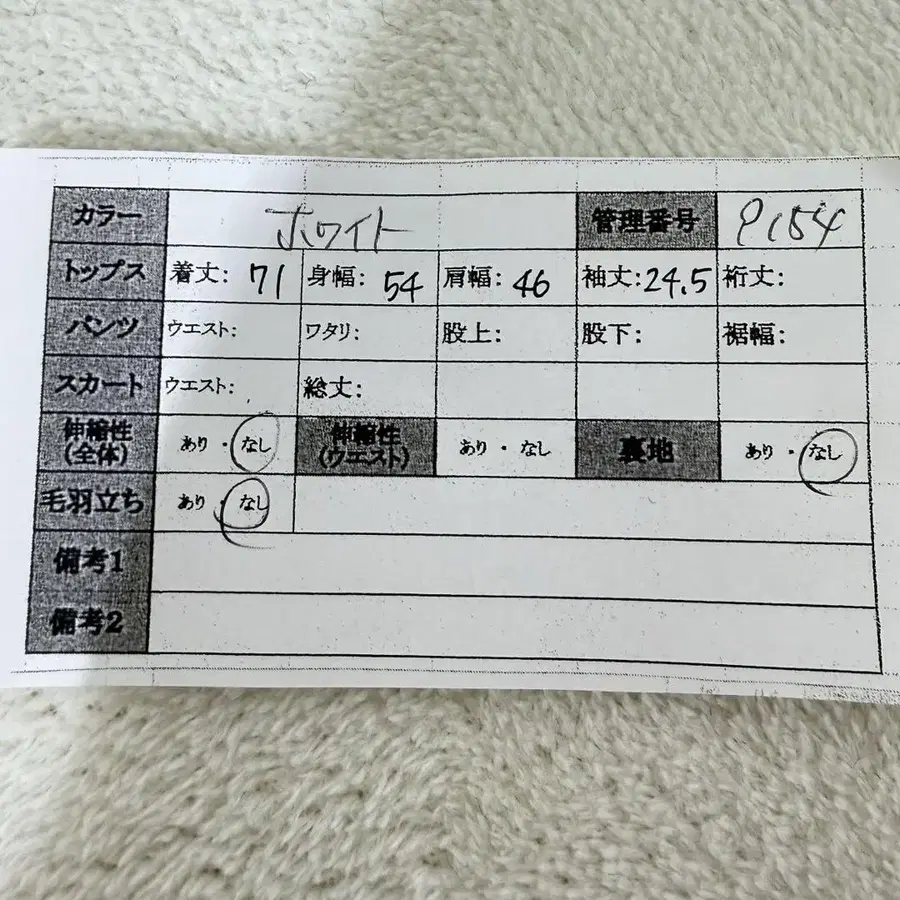 カラー ホワイト 管理番号 P154
トップス 着丈: 71 身幅: 54 肩幅: 46 袖丈: 24.5 裄丈:
パンツ ウエスト: ワタリ: 股上: 股下: 裾幅:
スカート ウエスト: 総丈:
伸縮性 あり・なし 伸縮性 あり・なし 裏地 あり・なし
(全体) (ウエスト)
毛羽立ち あり・なし
備考1
備考2